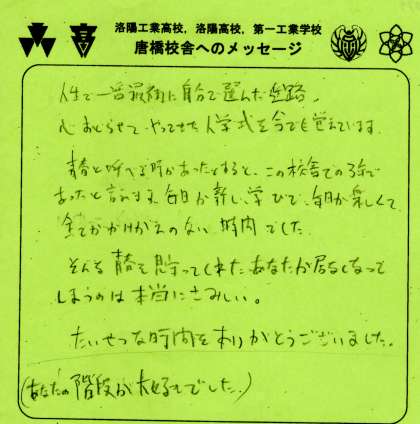 洛陽工業高校, 洛陽高校, 第一工業学校
唐橋校舎へのメッセージ
人生で一番最初に自分で選んだ進路、
心おどらせて やってきた 入学式を今でも覚えています。
青春と呼べる時があったとすると、この校舎での3年で
あったと言えます。毎日が新しい学びで、毎日が楽しくて
全てがかけがえのない 時間でした。
そんな 青春を 見守ってくれた あなたが居なくなって
しまうのは 本当にさみしい。
たいせつな時間を ありがとうございました。
(あなたの 階段が 大好きでした。)